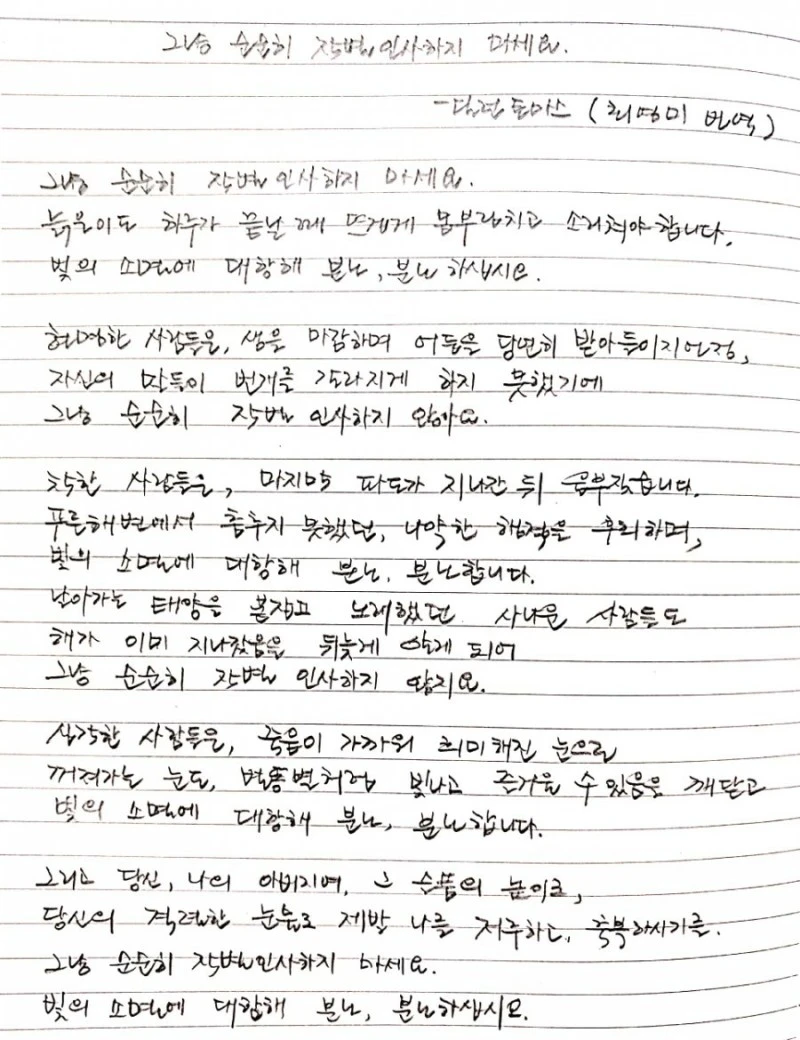 그냥 순순히 작별인사하지 마세요.
-딜런 토마스 (최영미 번역)
그냥 순순히 작별인사하지 마세요.
늙은이도 하루가 끝날 때 뜨겁게 몸부림치고 소리쳐야합니다.
빛의 소멸에 대항해 분노, 분노하십시요.
현명한 사람들은, 생을 마감하며 어둠을 당연히 받아들이지언정,
자신의 말들이 번개를 갈라지게 하지 못했기에
그냥 순순히 작별 인사하지 않아요.
착한 사람들은, 마지막 파도가 지나간 뒤 울부짖습니다.
푸른해변에서 춤추지 못했던, 나약한 행적을 후회하며,
빛의 소멸에 대항해 분노, 분노합니다.
날아가는 태양을 붙잡고 노래했던 사나운 사람들도
해가 이미 지나갔음을 뒤늦게 알게 되어
그냥 순순히 작별 인사하지 않지요.
심각한 사람들은, 죽음이 가까워 희미해진 눈으로
꺼져가는 눈도, 별똥별처럼 빛나고 즐거울 수 있음을 깨닫고
빛의 소멸에 대항해 분노, 분노합니다.
그리고 당신, 나의 아버지여, 그 슬픔의 높이로,
당신의 격렬한 눈물로 제발 나를 저주하고, 축복하시기를.
그냥 순순히 작별인사하지 마세요.
빛의 소멸에 대항해 분노, 분노하십시요.